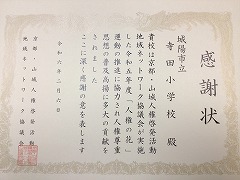 感謝状
城陽市立
寺田小学校 殿
貴校は京都・山城人権啓発活動
地域ネットワーク協議会が実施
した令和五年度「人権の花」
運動の推進に協力され人権尊重
思想の普及高揚に多大の貢献を
されました
ここに深く感謝の意を表します
令和六年二月六日
京都・山城人権啓発活動
地域ネットワーク協議会